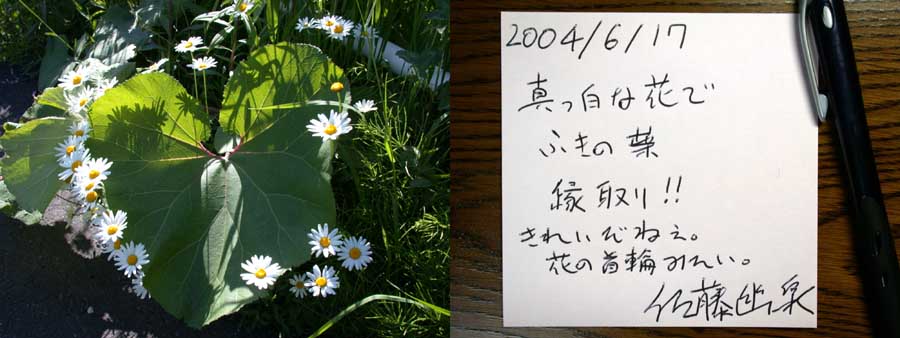 2004/6/17
真っ白な花で
ふきの葉
縁取り!!
きれいだねぇ。
花の首輪みたい。
佐藤